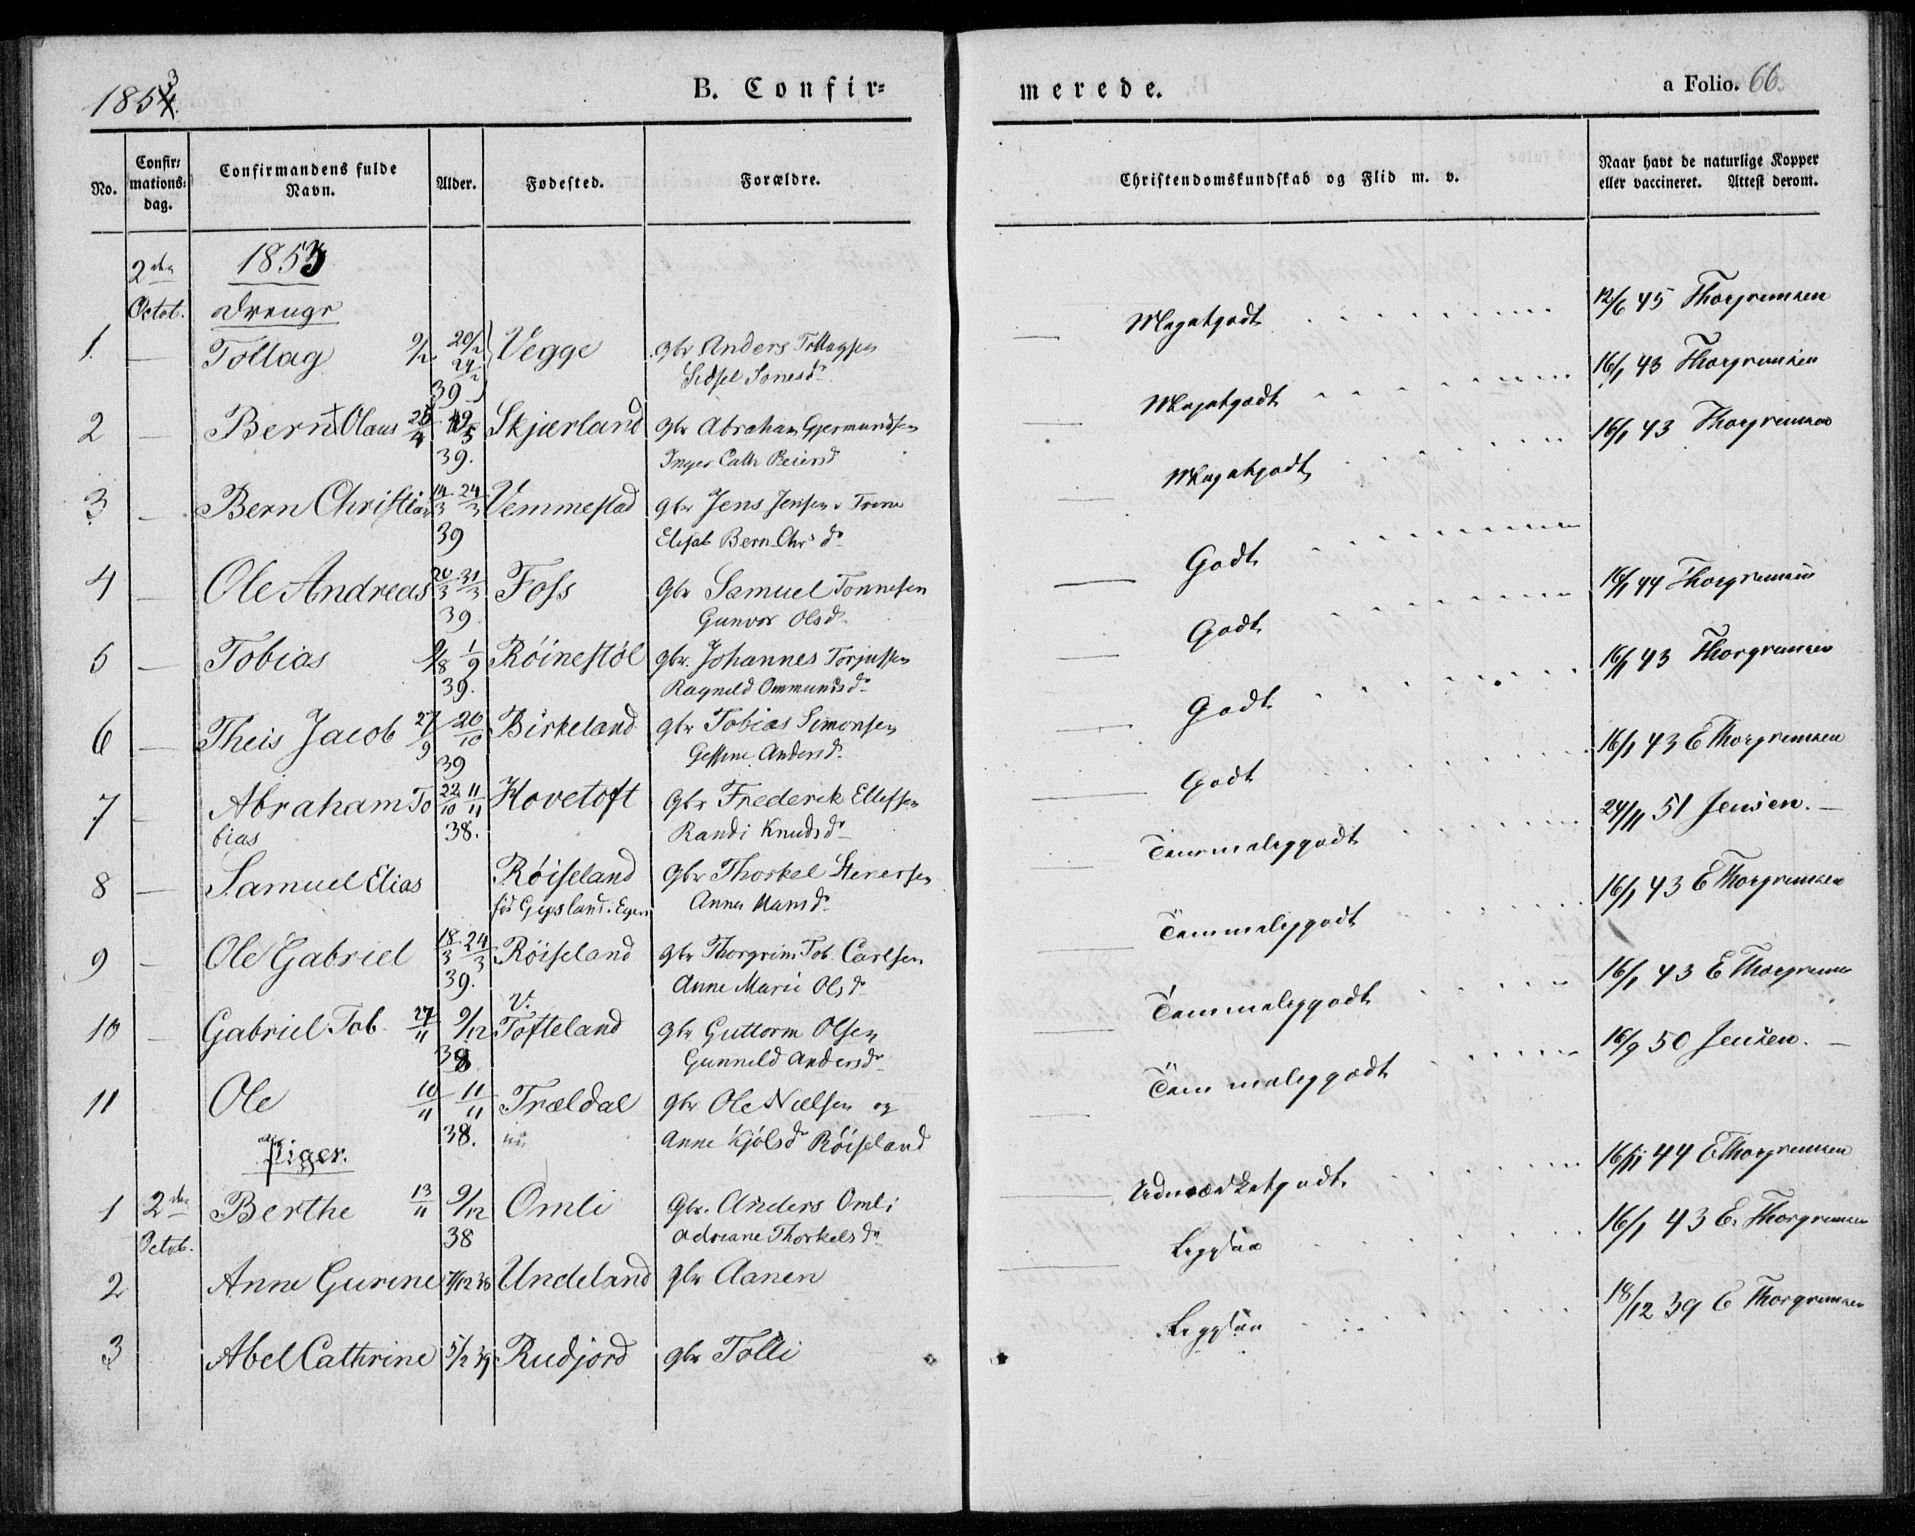 1853
B. Confir=
merede.
a Folio. 66.
No.
Confir= mations= dag.
Confirmandens fulde Navn.
Alder.
Fødested.
Forældre.
Christendomskundskab og Flid m. v.
Naar havt de naturlige Kopper eller vaccineret. Attest derom.
2den Octob.
1853
Drenge
1 — Tollag 9/2 20/2 24/2 39 Vegge gbr Anders Tollagsen
Sidsel Tonesdr
— Megetgodt 12/6 45 Thorgrimsen
2 — Bernt Olaus 26/4 19/5 39. Skjærland gbr Abraham Gjermundsen
Inger Cath Beiersd
— Megetgodt 16/1 43 Thorgrimsen
3 — Bern Christian 14/3 24/3 39 Vemmestad gbr Jens Jensen Trine
Elisab Bern Chr d
— Megetgodt 16/1 43 Thorgrimsen
4 — Ole Andreas 20/3 31/3 39. Foss gbr Samuel Tønnesen
Gunvor Olsd
— Godt
5 — Tobias 9/8 1/9 39. Røinestøl gbr. Johannes Torjussen
Ragnild Ommundsd
— Godt 16/1 44 Thorgrimsen
6 — Theis Jacob 27/9 20/10 39 Birkeland gbr Tobias Simonsen
Gessine Andersd
— Godt 16/1 43 Thorgrimsen
7 — Abraham To
bias 22/10 11/11 38. Hovetoft gbr Frederik Ellefsen
Randi Knudsd
— Godt 16/1 43 E Thorgrimsen
8 — Samuel Elias Røiseland gbr Thorkel Steversen
fød Gysland. Egers Anna Hansd
— Temmeliggodt 24/11 51 Jensen. —
9 — Ole Gabriel 18/3 24/3 39. Røiseland gbr Thorgrim Tob. Carlsen
Anne Marie Olsd
— Temmeliggodt 16/1 43 E Thorgrimsen
10 — Gabriel Tob. 27/11 9/12 38 V. Tofteland gbr Guttorm Olsen
Gunnild Andersd
— Temmeliggodt 16/1 43 E Thorgrimsen
11 Ole 10/11 11/11 38. Trældal gbr Ole Nielsen og
Anne Kjølsd Røiseland
— Temmeliggodt 16/9 50 Jensen. —
Piger.
1 2den Octob. Berthe 13/11 9/12 38 Omli Gbr. Anders Omli
Adriane Thorkelsd
— Udmærketgodt 16/11 44 E Thorgrimsen
2 Anne Gurine 7/12 38 Undeland gbr Aanen
— 16/1 43 E. Thorgrimsen
3 Abel Cathrine 5/12 39 Rudjord gbr Tolli
18/12 39 E Thorgrimsen